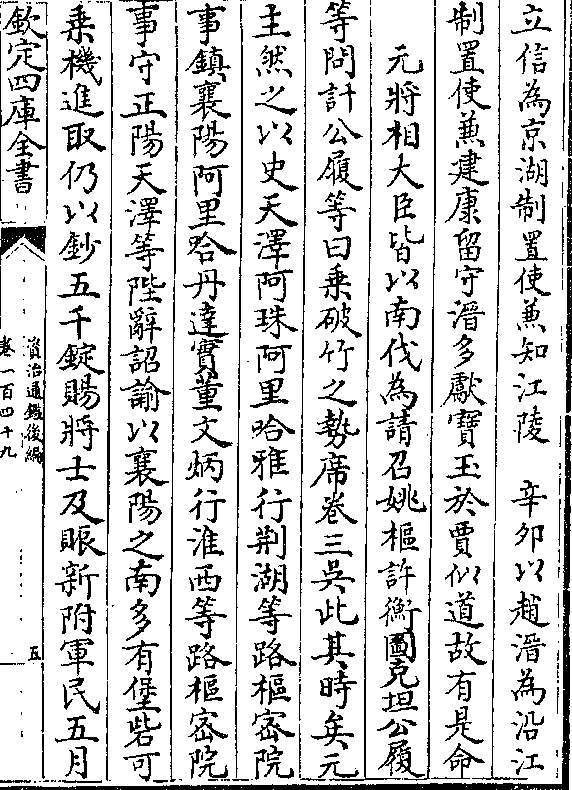 立信為京湖制置使兼知江陵　辛卯以趙溍為沿江
制置使兼建康留守溍多獻寶玉於賈似道故有是命
元將相大臣皆以南伐為請召姚樞許衡圖克坦公履
等問計公履等曰乗破竹之勢席卷三吳此其時矣元
主然之以史天澤阿珠阿里哈雅行荆湖等路樞宻院
事鎮襄陽阿里哈丹達實董文炳行淮西等路樞宻院
事守正陽天澤等陛辭詔諭以襄陽之南多有堡砦可
乗機進取仍以鈔五千錠賜將士及賑新附軍民五月
欽定四庫全書
資治通鑑後編
卷一百四十九
五